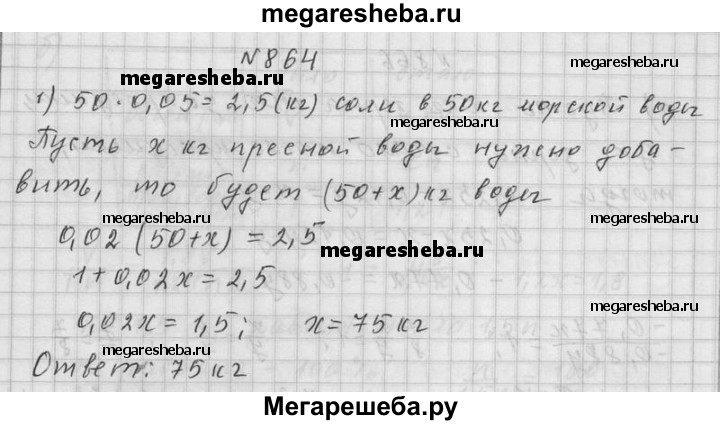 megaresheba.ru
№864
megaresheba.ru
megaresheba.ru
1) 50 · 0,05 = 2,5 (кг) соли в 50кг морской воды
megaresheba.ru
Пусть x кг пресной воды нужно доба-
вить, то будет (50+x) кг воды
megaresheba.ru
megaresheba.ru
0,02 (50+x) = 2,5
megaresheba.ru
1+0,02x = 2,5
megaresheba.ru
0,02x = 1,5; x = 75 кг
megaresheba.ru
Ответ: 75 кг
Мегарешеба.ру